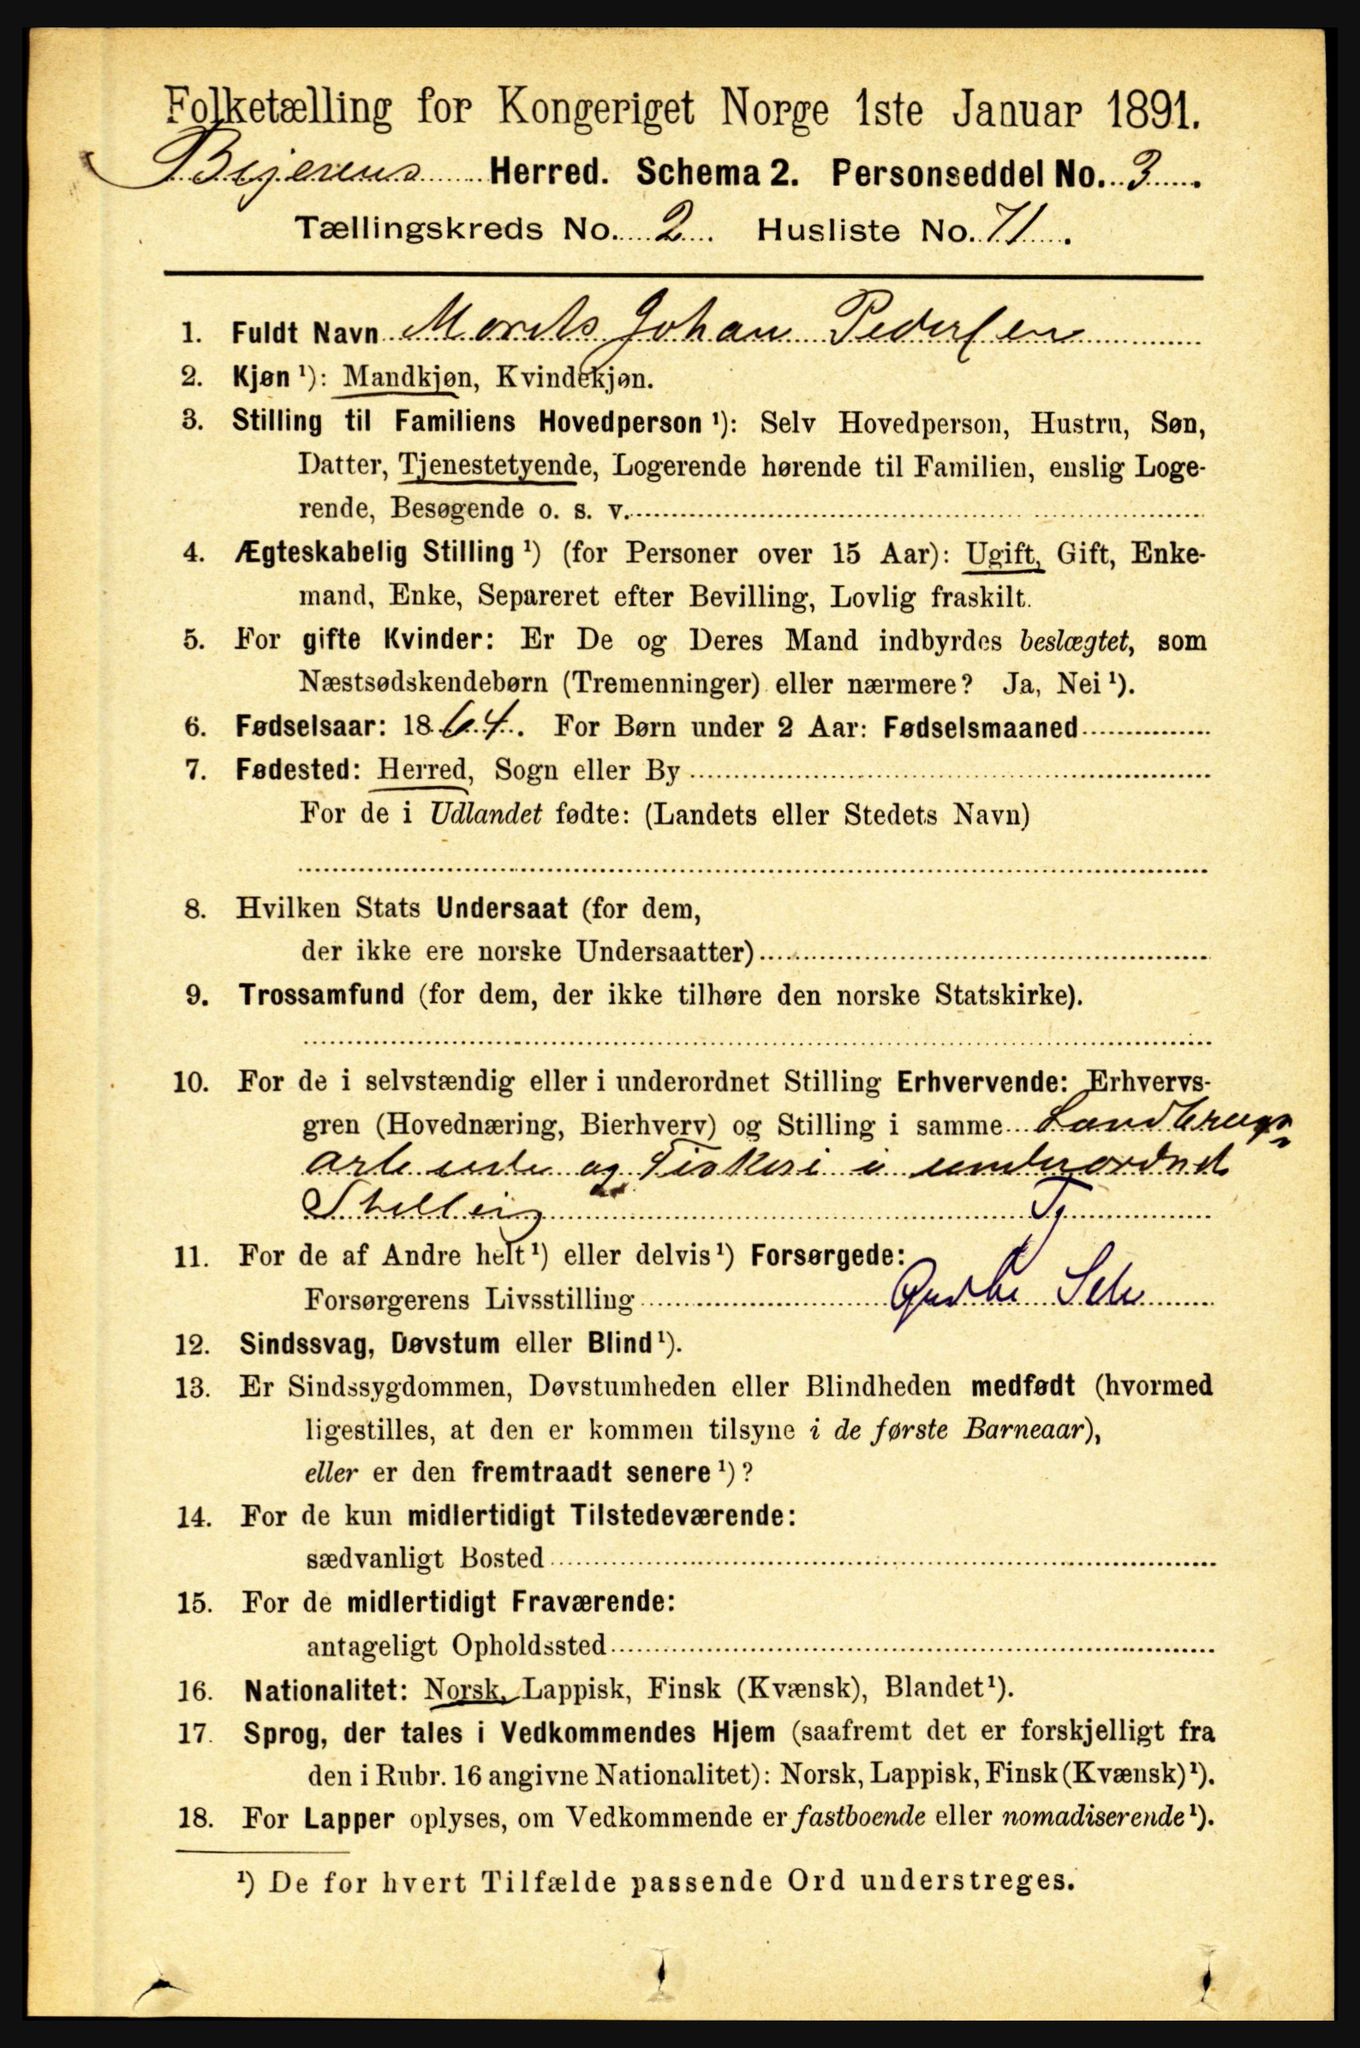 Folketælling for Kongeriget Norge 1ste Januar 1891.
Bejerens Herred. Schema 2. Personseddel No. 3.
Tællingskreds No. 2. Husliste No. 71.
1. Fuldt Navn Morits Johan Pedersen
2. Kjøn ¹): Mandkjøn, Kvindekjøn.
3. Stilling til Familiens Hovedperson ¹): Selv Hovedperson, Hustru, Søn,
Datter, Tjenestetyende, Logerende hørende til Familien, enslig Loge-
rende, Besøgende o. s. v.
4. Ægteskabelig Stilling ¹) (for Personer over 15 Aar): Ugift, Gift, Enke-
mand, Enke, Separeret efter Bevilling, Lovlig fraskilt.
5. For gifte Kvinder: Er De og Deres Mand indbyrdes beslægtet, som
Næstsødskendebørn (Tremenninger) eller nærmere? Ja, Nei ¹).
6. Fødselsaar: 1864. For Børn under 2 Aar: Fødselsmaaned
7. Fødested: Herred, Sogn eller By
For de i Udlandet fødte: (Landets eller Stedets Navn)
8. Hvilken Stats Undersaat (for dem,
der ikke ere norske Undersaatter)
9. Trossamfund (for dem, der ikke tilhøre den norske Statskirke).
10. For de i selvstændig eller i underordnet Stilling Erhvervende: Erhvervs-
gren (Hovednæring, Bierhverv) og Stilling i samme Landbrugs
arbeide og Fiskeri i underordnet
Stilling Tj
11. For de af Andre helt ¹) eller delvis ¹) Forsørgede:
Forsørgerens Livsstilling
12. Sindssvag, Døvstum eller Blind ¹).
13. Er Sindssygdommen, Døvstumheden eller Blindheden medfødt (hvormed
ligestilles, at den er kommen tilsyne i de første Barneaar),
eller er den fremtraadt senere ¹)?
14. For de kun midlertidigt Tilstedeværende:
sædvanligt Bosted
15. For de midlertidigt Fraværende:
antageligt Opholdssted
16. Nationalitet: Norsk, Lappisk, Finsk (Kvænsk), Blandet ¹).
17. Sprog, der tales i Vedkommendes Hjem (saafremt det er forskjelligt fra
den i Rubr. 16 angivne Nationalitet): Norsk, Lappisk, Finsk (Kvænsk) ¹).
18. For Lapper oplyses, om Vedkommende er fastboende eller nomadiserende ¹).
¹) De for hvert Tilfælde passende Ord understreges.